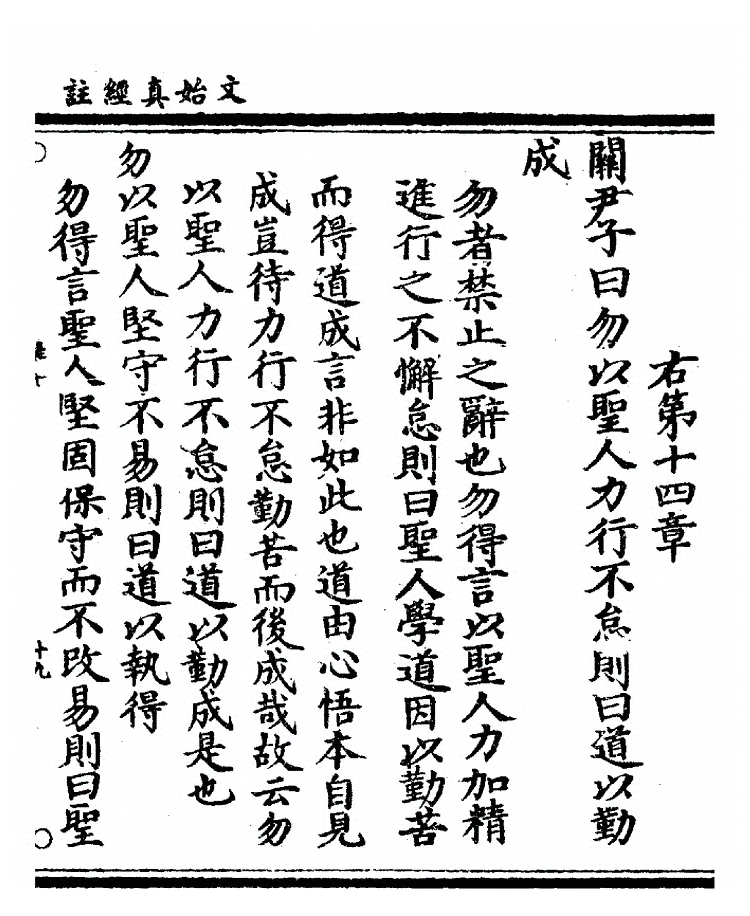 文始真經註
右第十四章
關尹子曰勿以聖人力行不怠則曰道以勤
成
勿者禁止之辭也勿得言以聖人力加精
進行之不懈怠則曰聖人學道因以勤苦
而得道成言非如此也道由心悟本自見
成豈待力行不怠勤苦而後成哉故云勿
以聖人力行不怠則曰道以勤成是也
勿以聖人堅守不易則曰道以執得
勿得言聖人堅固保守而不改易則曰聖
十九